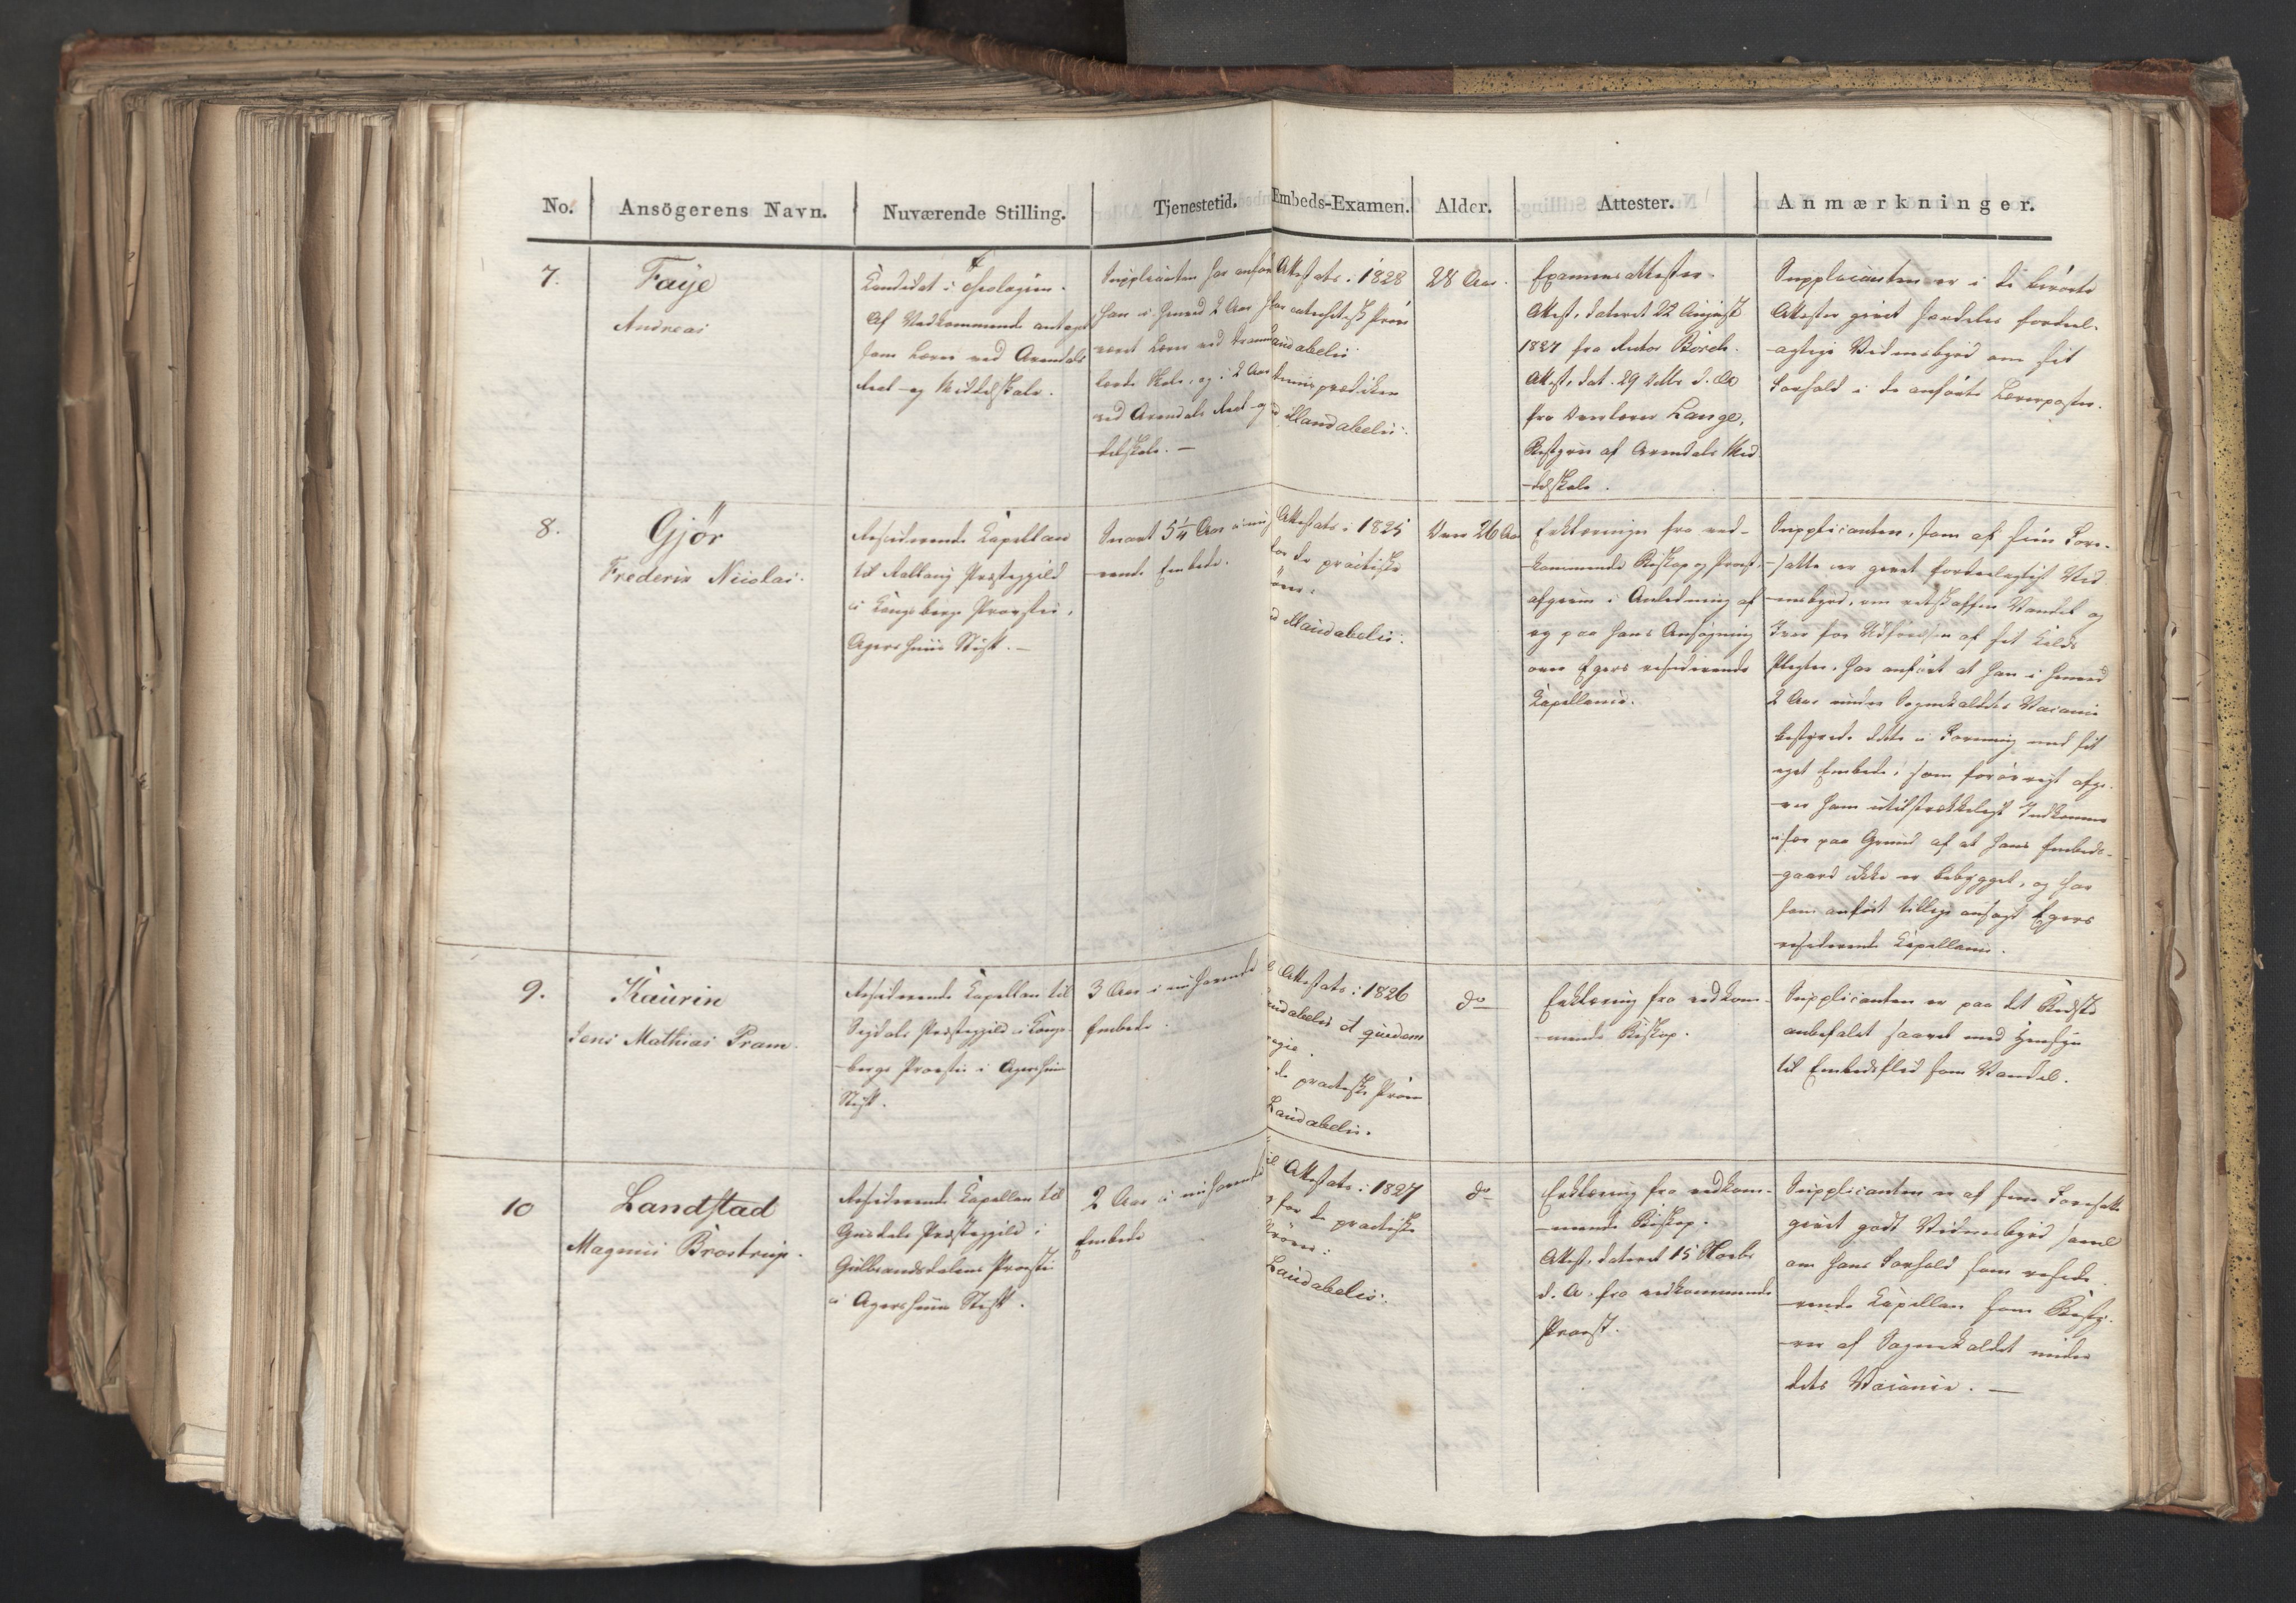 No. Ansögerens Navn. Nuværende Stilling. Tjenestetid. Embeds-Examen. Alder. Attester. Anmærkninger.
7.
Faye
Andreas
Candidat i Theologien.
Af Vedkommende antaget
som Lærer ved Arendals
Real- og Middelskole.
Supplicanten har anført
han i henved 2 Aar har
været Lærer ved
lærde Skole, og i 2 Aar
ved Arendals Real- og
delskole. —
Attestats: 1828
catechetisk Prøve
audabelis
Dimisprædiken
Haud abelis.
28 Aar.
Examens Attester.
Attest, dateret 22 August
1827 fra Rector Borch.
Attest, dat. 29 d. A.
fra Overlærer Lange,
Bestyrer af Arendals Mid
-delskole.
Supplicanten er i de
Attester givet særdeles fordeel-
agtige Vidnesbyrd om sit
Forhold i de anførte Lærerposter.
8.
Gjör
Frederik Nicolai.
Residerende Capellan
til Rollaug Præstegjeld
i Kongsbergs Provstie,
Agershuus Stift. —
Snart 5¼ Aar i nu
-rende Embede.
Attestats: 1825
for de practiske
Haud abelis.
Over 26 Aar
Erklæringer fra ved-
kommende Biskop og Provst,
afgivne i Anledning af
og paa hans Ansøgning
om Egers residerende
Capellanie.
Supplicanten, som af sine Fore-
-satte er givet fordeelagtigt Vid
-nesbyrd, om retskaffen Vandel og
Iver for Udførelsen af sit Kalds
Pligter, har anført at han i henved
2 Aar under Sognekaldets Vacance
bestyrede dette i Forening med sit
eget Embede, som forøvrigt afgi-
-ver ham utilstrækkeligt Indkomme
især paa Grund af at hans Embeds-
-gaard ikke er bebygget, og har
som anført tillige ansøgt Egers
residerende Capellanie.
9.
Kaurin
Jens Mathias Pram.
Residerende Capellan til
Sigdals Præstegjeld i Kongs-
-bergs Provstie i Agershuus
Stift.
3 Aar i nuhavende
Embede.
Attestats: 1826
audabelis et quidem
egie.
de practiske Prøver
Laudabelis.
do
Erklæring fra vedkom-
-mende Biskop.
Supplicanten er paa det Bedste
anbefalet saavel med Hensyn
til Embedsflid som Vandel.
10
Landstad
Magnus Brostrup.
Residerende Capellan til
Gusdals Præstegjeld i
Gulbrandsdalens Provstie
i Agershuus Stift.
2 Aar i nuhavende
Embede
Attestats: 1827
for de practiske
Prøver:
Laudabelis.
do
Erklæring fra vedkom-
-mende Biskop.
Attest, dateret 15 Novbr
d. A. fra vedkommende
Provst.
Supplicanten er af sine Foresatte
givet godt Vidnesbyrd saavel
om hans Forhold som reside-
-rende Capellan som Besty-
-rer af Sognekaldet under
dets Vacance. —